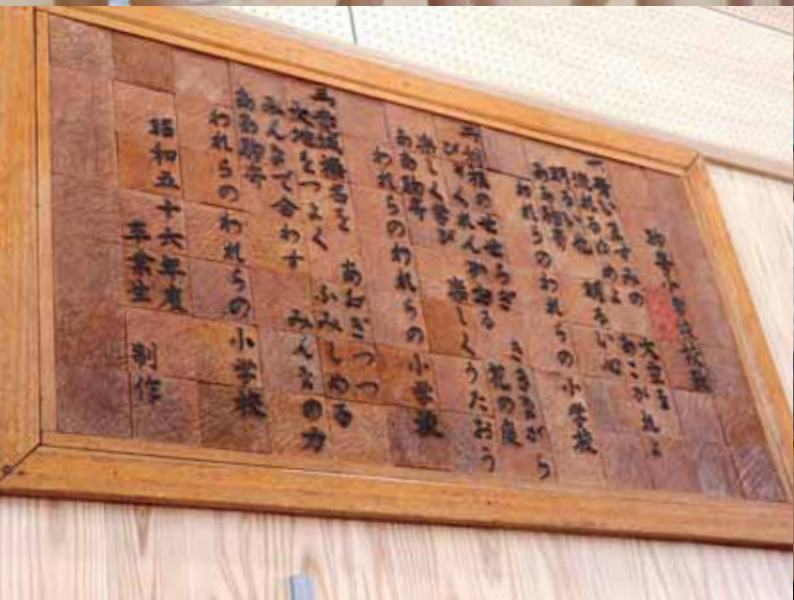 駒寄小学校校歌
一 青いますみの 大空を
流れるゆめよ あこがれよ
明るい 明るい
ああ駒寄
われらのわれらの小学校
二 のせせらぎ ききながら
かおる 花の庭
楽しく学び 楽しくうたおう
ああ駒寄
われらのわれらの小学校
三 榛名を あおぎつつ
大地をつよく ふみしめる
みんなで合わす みんなの力
ああ駒寄
われらのわれらの小学校
昭和五十六年度
卒業生 制作